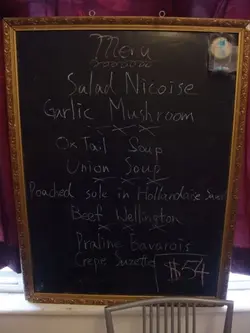 Menu
Salad Nicoise
Garlic Mushroom
Ox Tail Soup
Union Soup
Pouched sole in Hollandaise
Beef Wellington
Praline Bavarois
Crepe Suzette
$54